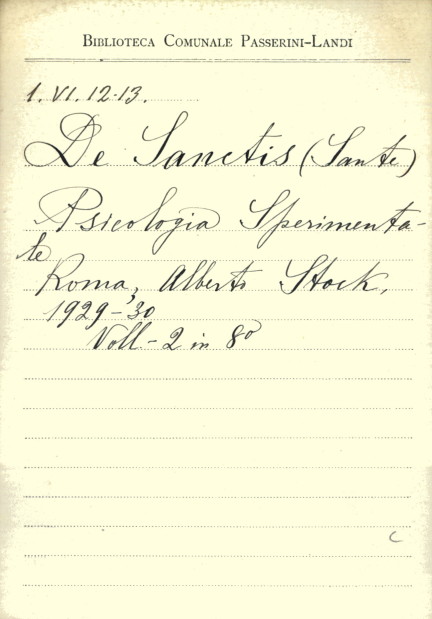 Biblioteca Comunale Passerini-Landi
1. VI. 12-13.
De Sanctis (Sante)
Psicologia Sperimenta-
le
Roma, Alberto Stock,
1929-30
Voll - 2 in 8º
C